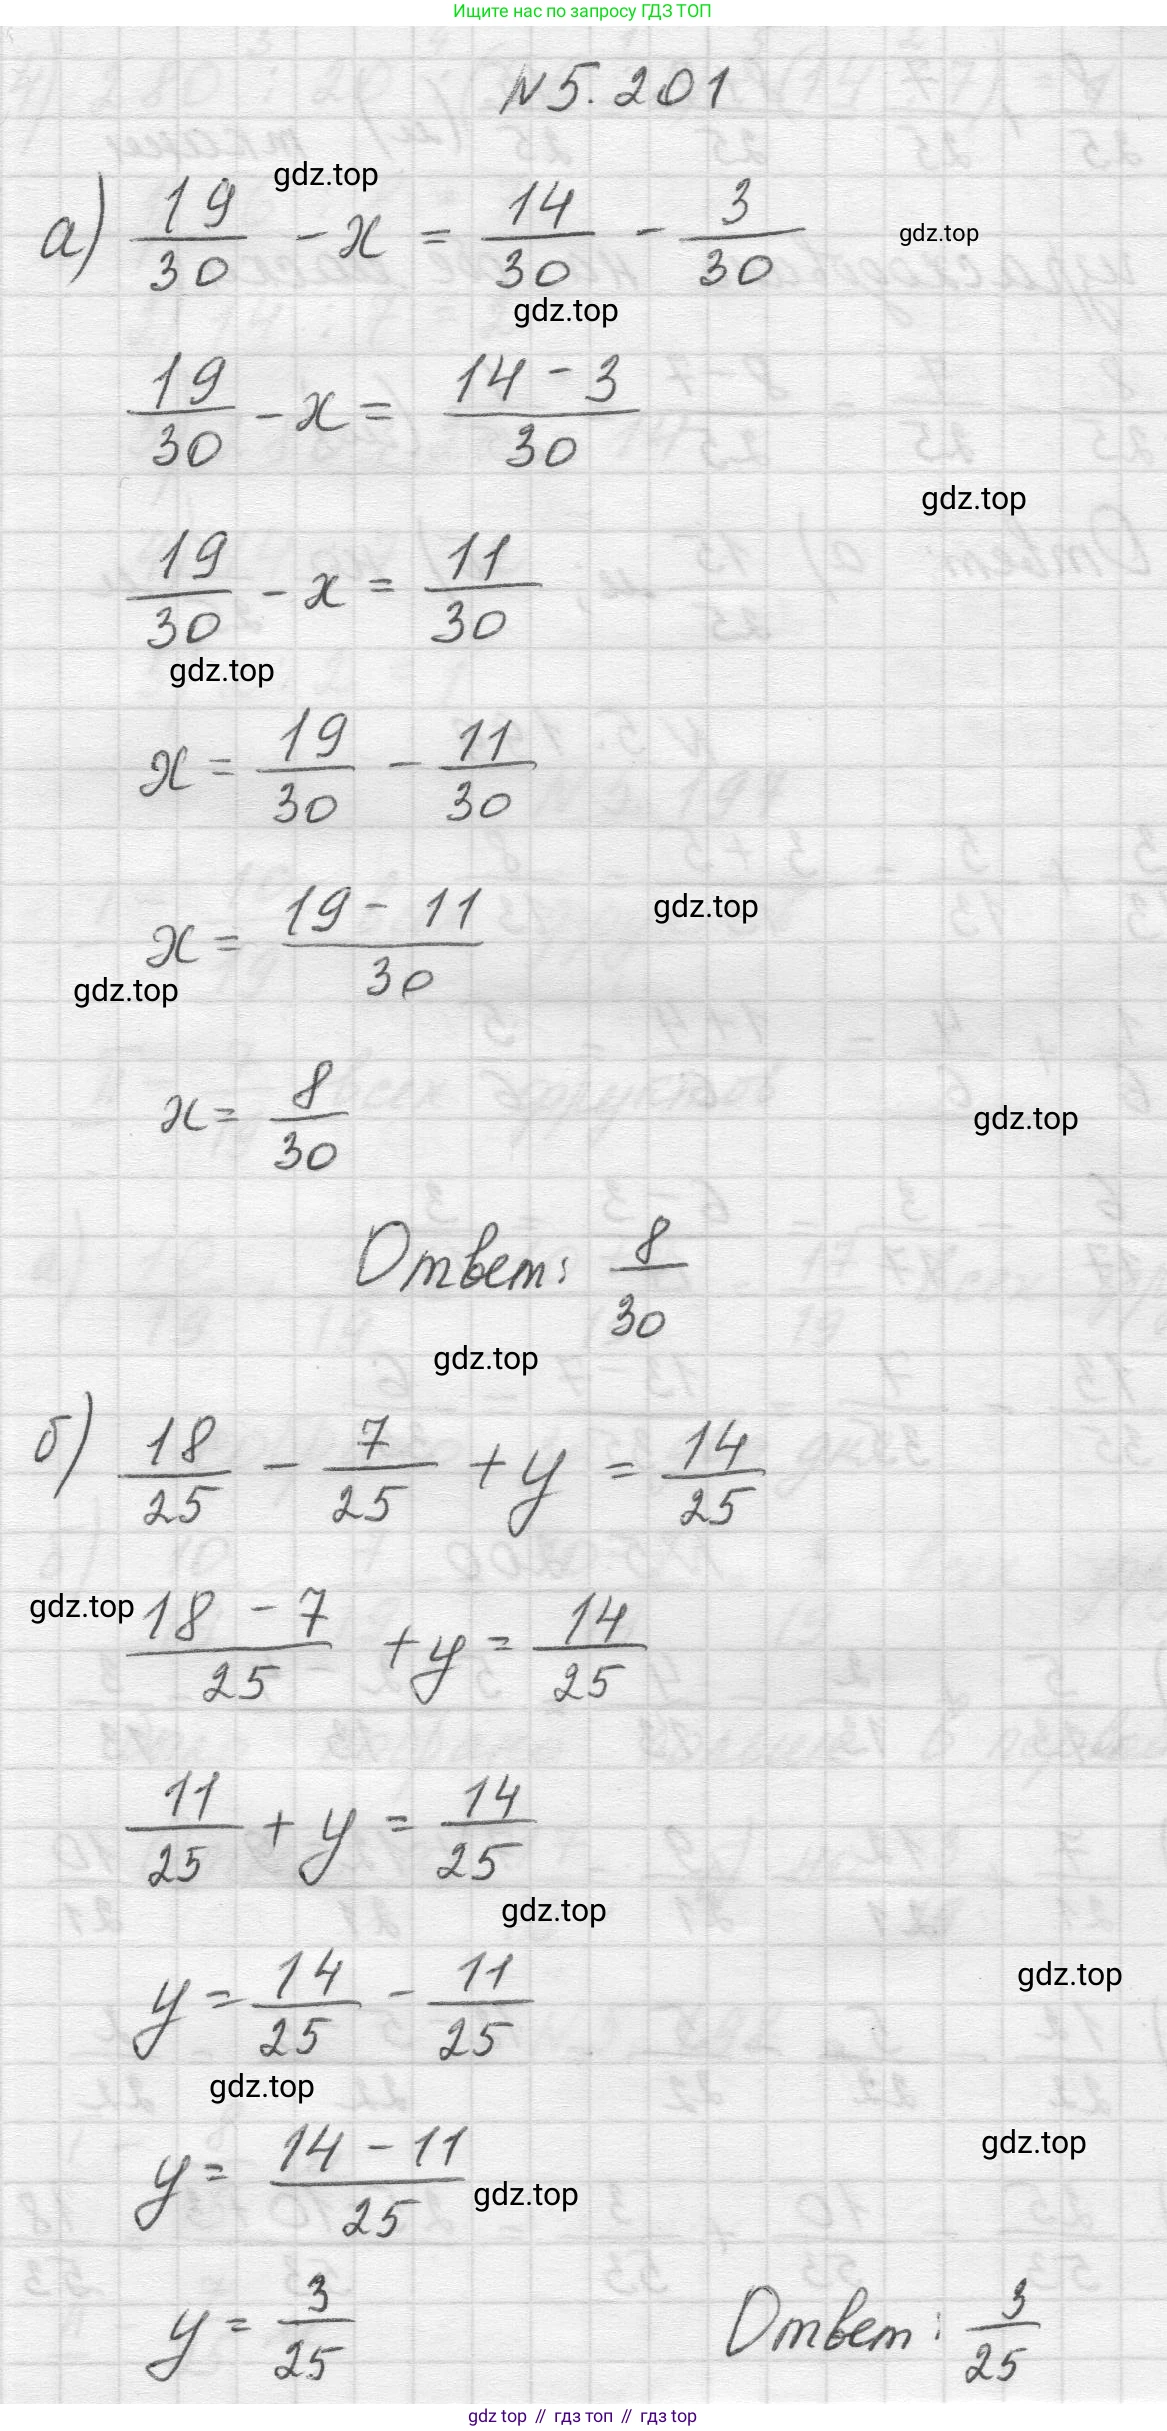 Ищите нас по запросу ГДЗ ТОП
N 5.201
gdz.top
а) 19/30 - x = 14/30 - 3/30
gdz.top
gdz.top
19/30 - x = (14 - 3)/30
gdz.top
19/30 - x = 11/30
gdz.top
x = 19/30 - 11/30
x = (19 - 11)/30
gdz.top
gdz.top
x = 8/30
gdz.top
Ответ: 8/30
gdz.top
б) 18/25 - 7/25 + y = 14/25
gdz.top
(18 - 7)/25 + y = 14/25
11/25 + y = 14/25
gdz.top
y = 14/25 - 11/25
gdz.top
gdz.top
y = (14 - 11)/25
gdz.top
gdz.top
y = 3/25
Ответ: 3/25
gdz.top // гдз топ // гдз top